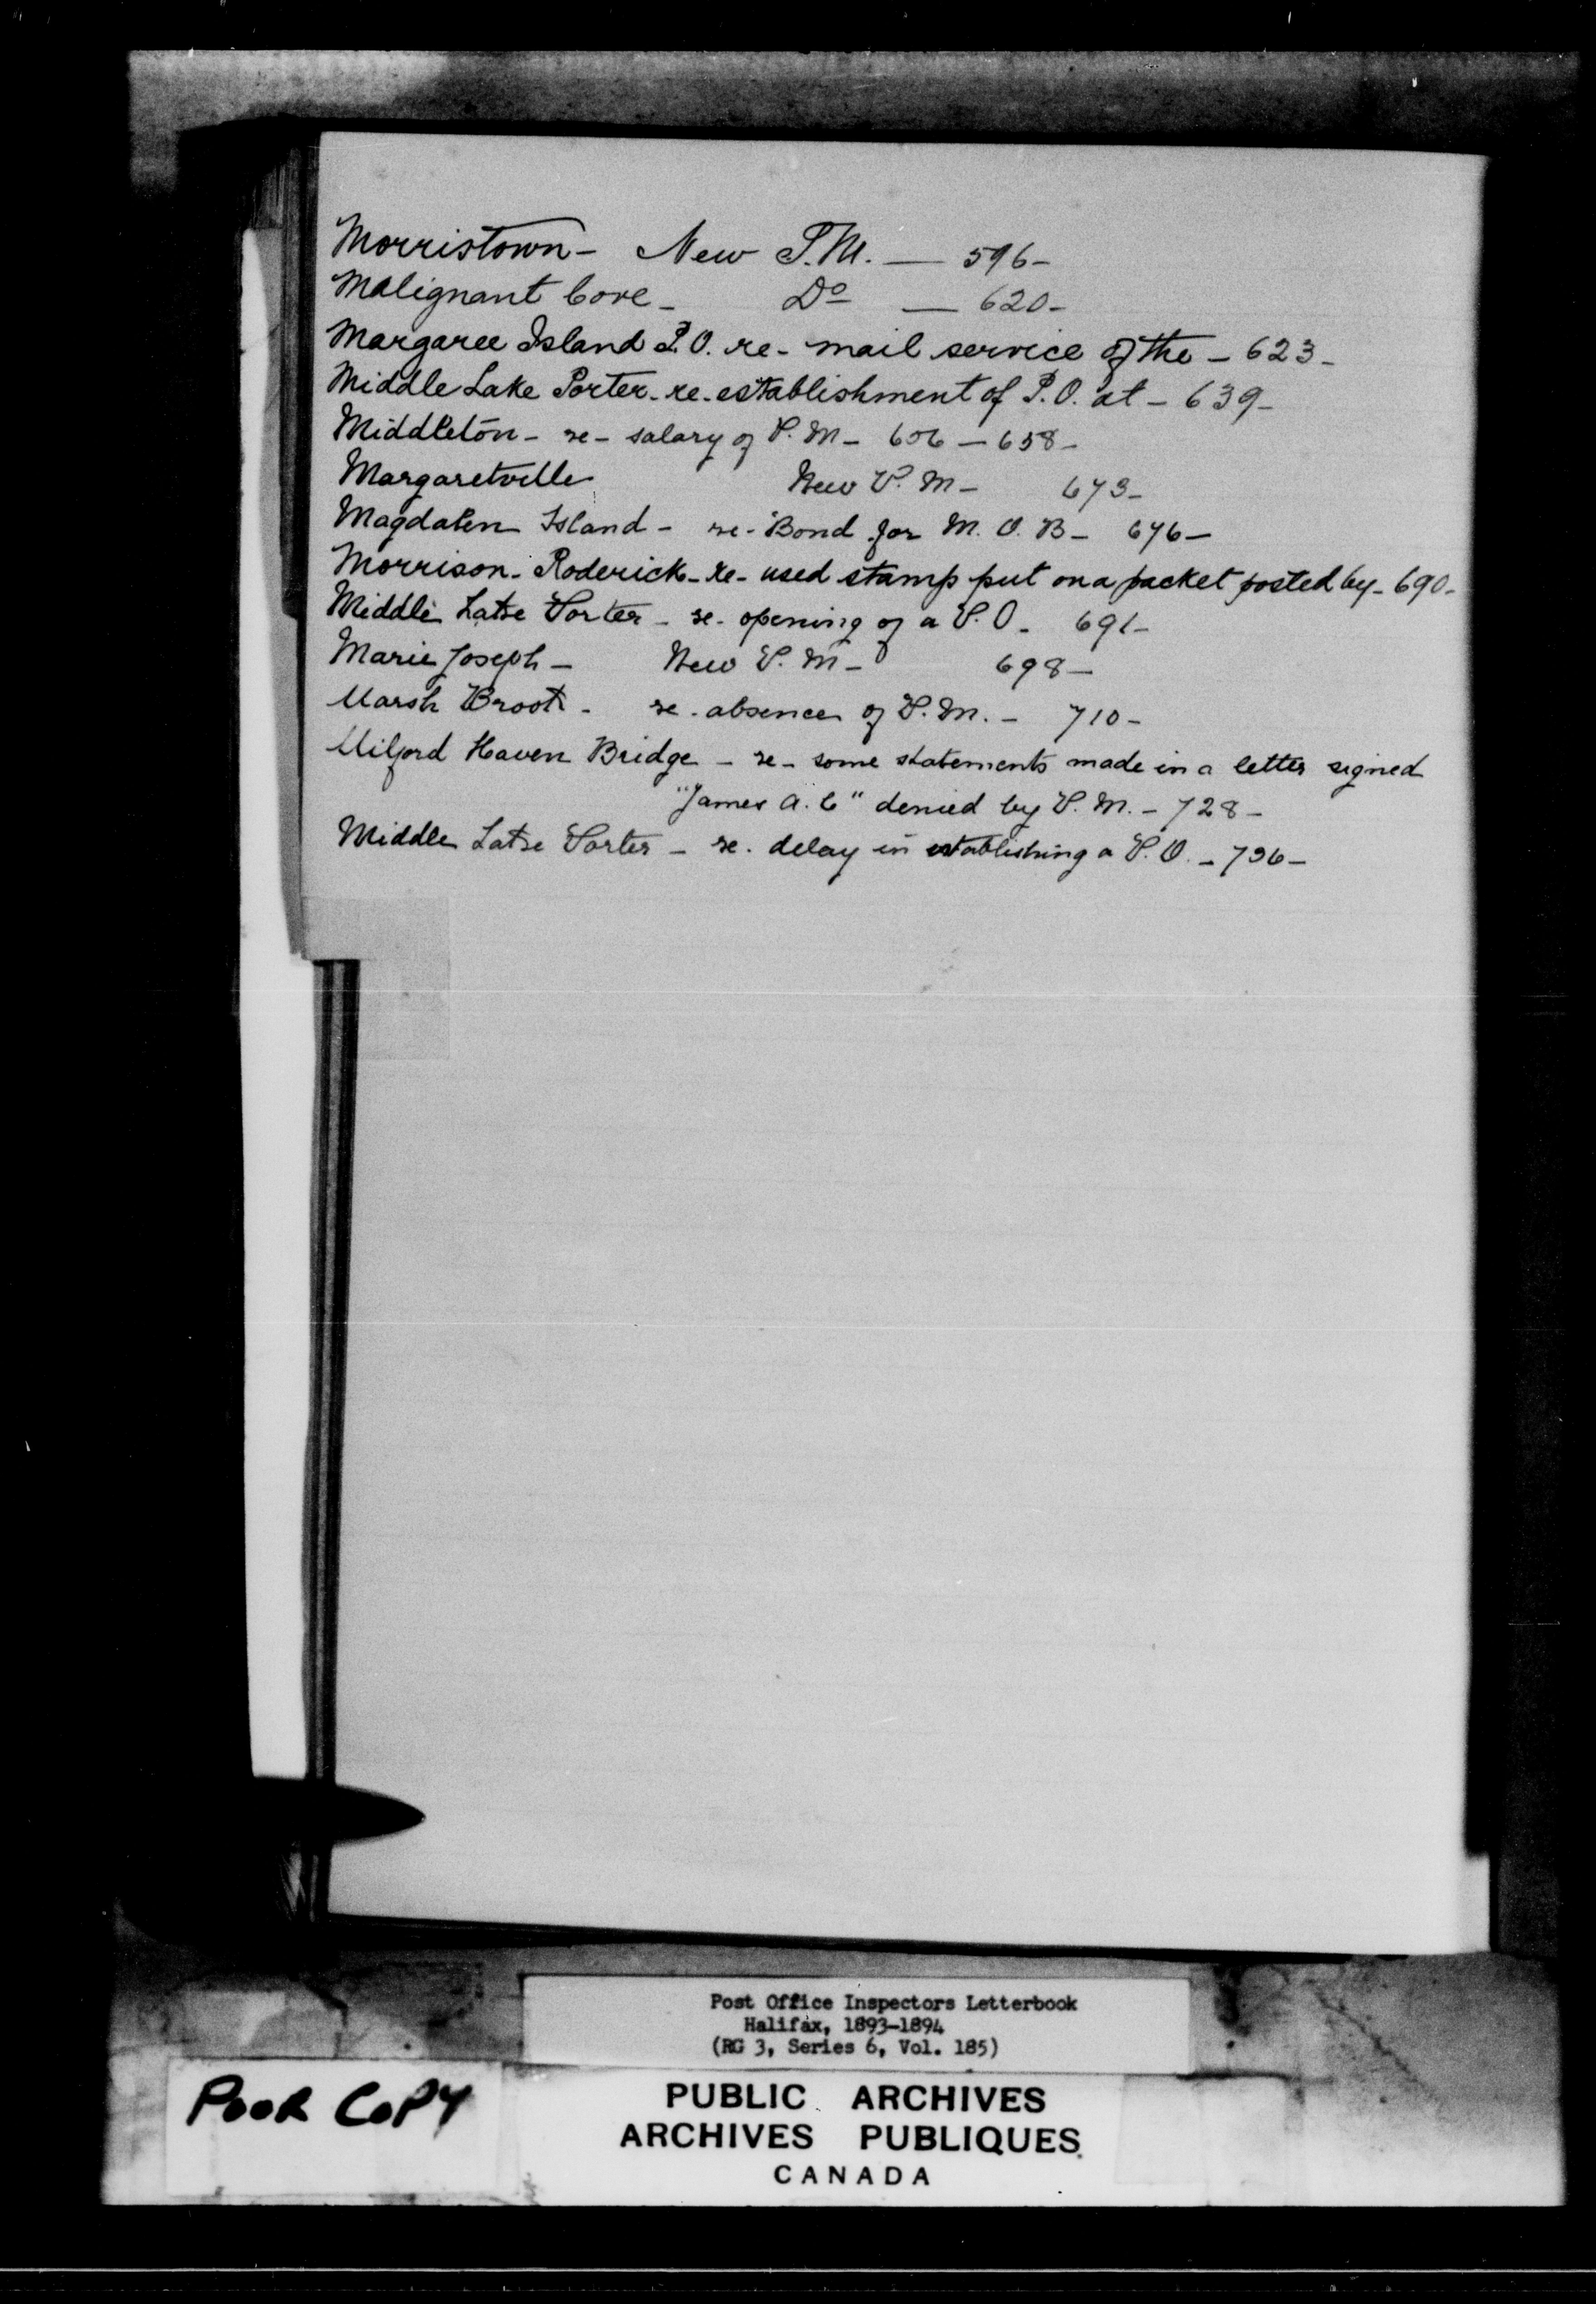 Morristown - New P.M. — 596 -
Malignant Cove - Do — 620 -
Margaree Island P.O. re - mail service of the - 623 -
Middle Lake Porter - re - establishment of P.O. at - 639 -
Middleton - re - salary of P.M - 606 - 658 -
Margaretville New P.M - 673 -
Magdalen Island - re - Bond for M.O.B - 676 -
Morrison - Roderick - re - used stamp put on a packet posted by - 690 -
Middle Lake Porter - re - opening of a P.O - 691 -
Marie Joseph - New P.M - 698 -
Marsh Brook - re - absence of P.M. - 710 -
Milford Haven Bridge - re - some statements made in a letter signed
"James A. C" denied by P.M. - 728 -
Middle Lake Porter - re. delay in establishing a P.O. - 736 -
Post Office Inspectors Letterbook
Halifax, 1893-1894
(RG 3, Series 6, Vol. 185)
POOR COPY
PUBLIC ARCHIVES
ARCHIVES PUBLIQUES
CANADA